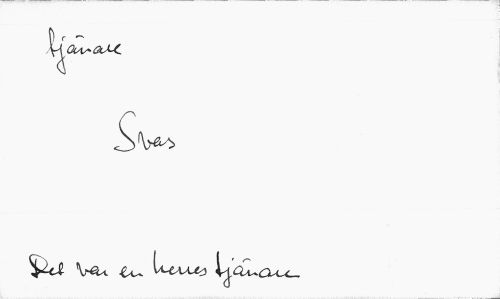 tjänare
Svas
Det var en herres tjänare